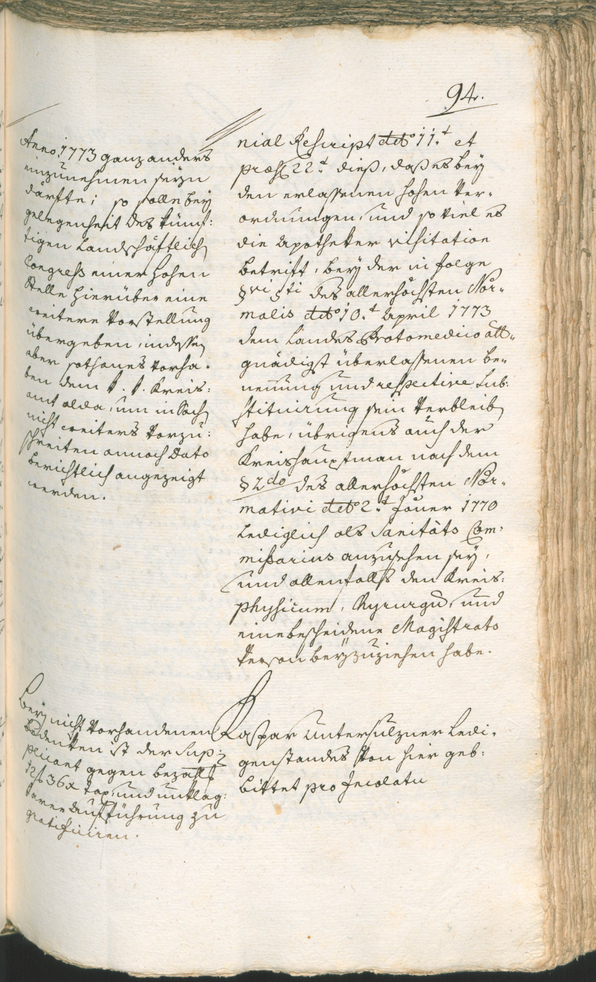 94.
Anno 1773 ganz anders
einzunehmen seyn
därfte; so solle bey
gelegenheit des künf:
tigen Landschäftlich
Congress einer hohen
Stelle hierüber eine
weitere Vorstellung
übergeben, indessen
aber sothanes Vorha-
ben dem k. k. Kreis:
amt alda, um in Sach
nicht weiters Vorzu:
schreiten annoch dato
berichtlich angezeigt
werden.
nial Rescript dtto 11.t et
præs 22.t dieß, daß es bey
den erlassenen hohen Ver-
ordnungen, und so viel es
die Apotheker visitation
betrift, bey der in folge
§vi gti des allerhöchsten Nor-
malis dtto 10.t April 1773
dem Landes Protomedico all-
gnädigst überlassenen be-
nennung und respective Sub-
stituirung sein Verbleib
habe, übrigens auch der
Kreishauptman nach dem
§ 2do des allerhöchsten Nor-
mativi dtto 2.t Jäner 1770
Lediglich als Sanitäts Com-
missarius anzusehen sey,
und allenfalls den Kreis-
physicum, Kyrurgum, und
eine bescheidene Magistrats
Person beyzuziehen habe.
Bey nicht Vorhandenen
Bedenken ist der Sup-
plicant gegen bezahlt
36x tax, und untlag-
barer Aufführung zu
gratificiren.
Kaspar Untersulzner Ledi-
genstandes Von hier geb:
bittet pro Incolatu